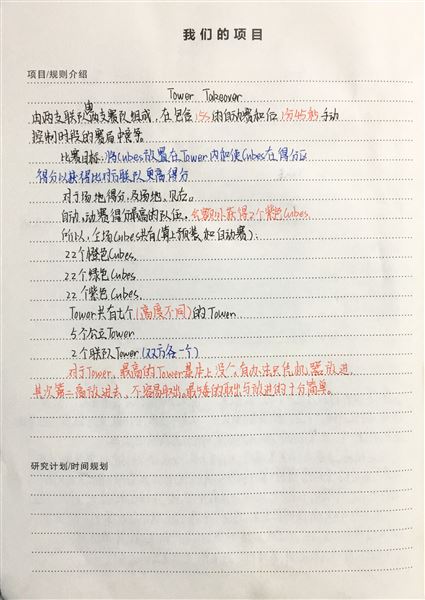 我们的项目
项目/规则介绍
Tower Takeover
由两支联队由两支赛队组成，在包含15s的自动赛和1分45秒手动
控制时段的赛局中竞争。
比赛目标：将Cubes放置在Tower内和使Cubes在得分区
得分以获得比对方联队更高得分
对于场地得分，及场地，见右。
自动赛得分最高的队伍。会额外获得2个紫色Cubes.
所以，全场Cubes共有(算上预装和自动赛)：
22个橙色Cubes.
22个绿色Cubes.
22个紫色Cubes.
Tower共有七个(高度不同)的Tower
5个公立Tower
2个联队Tower(双方各一个)
对于Tower，最高的Tower基本上没
其次第二高放进去，不容易取出，最矮的取出与放进的十分简单。
研究计划/时间规划